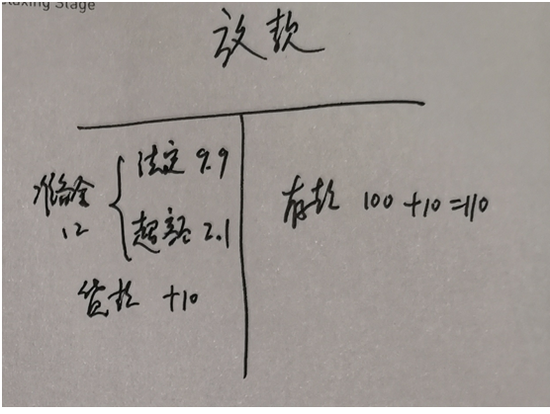 uxing Stage
放款
准备金 法定 9.9
12 超额 2.1
贷款 +10
存款 100+10=110